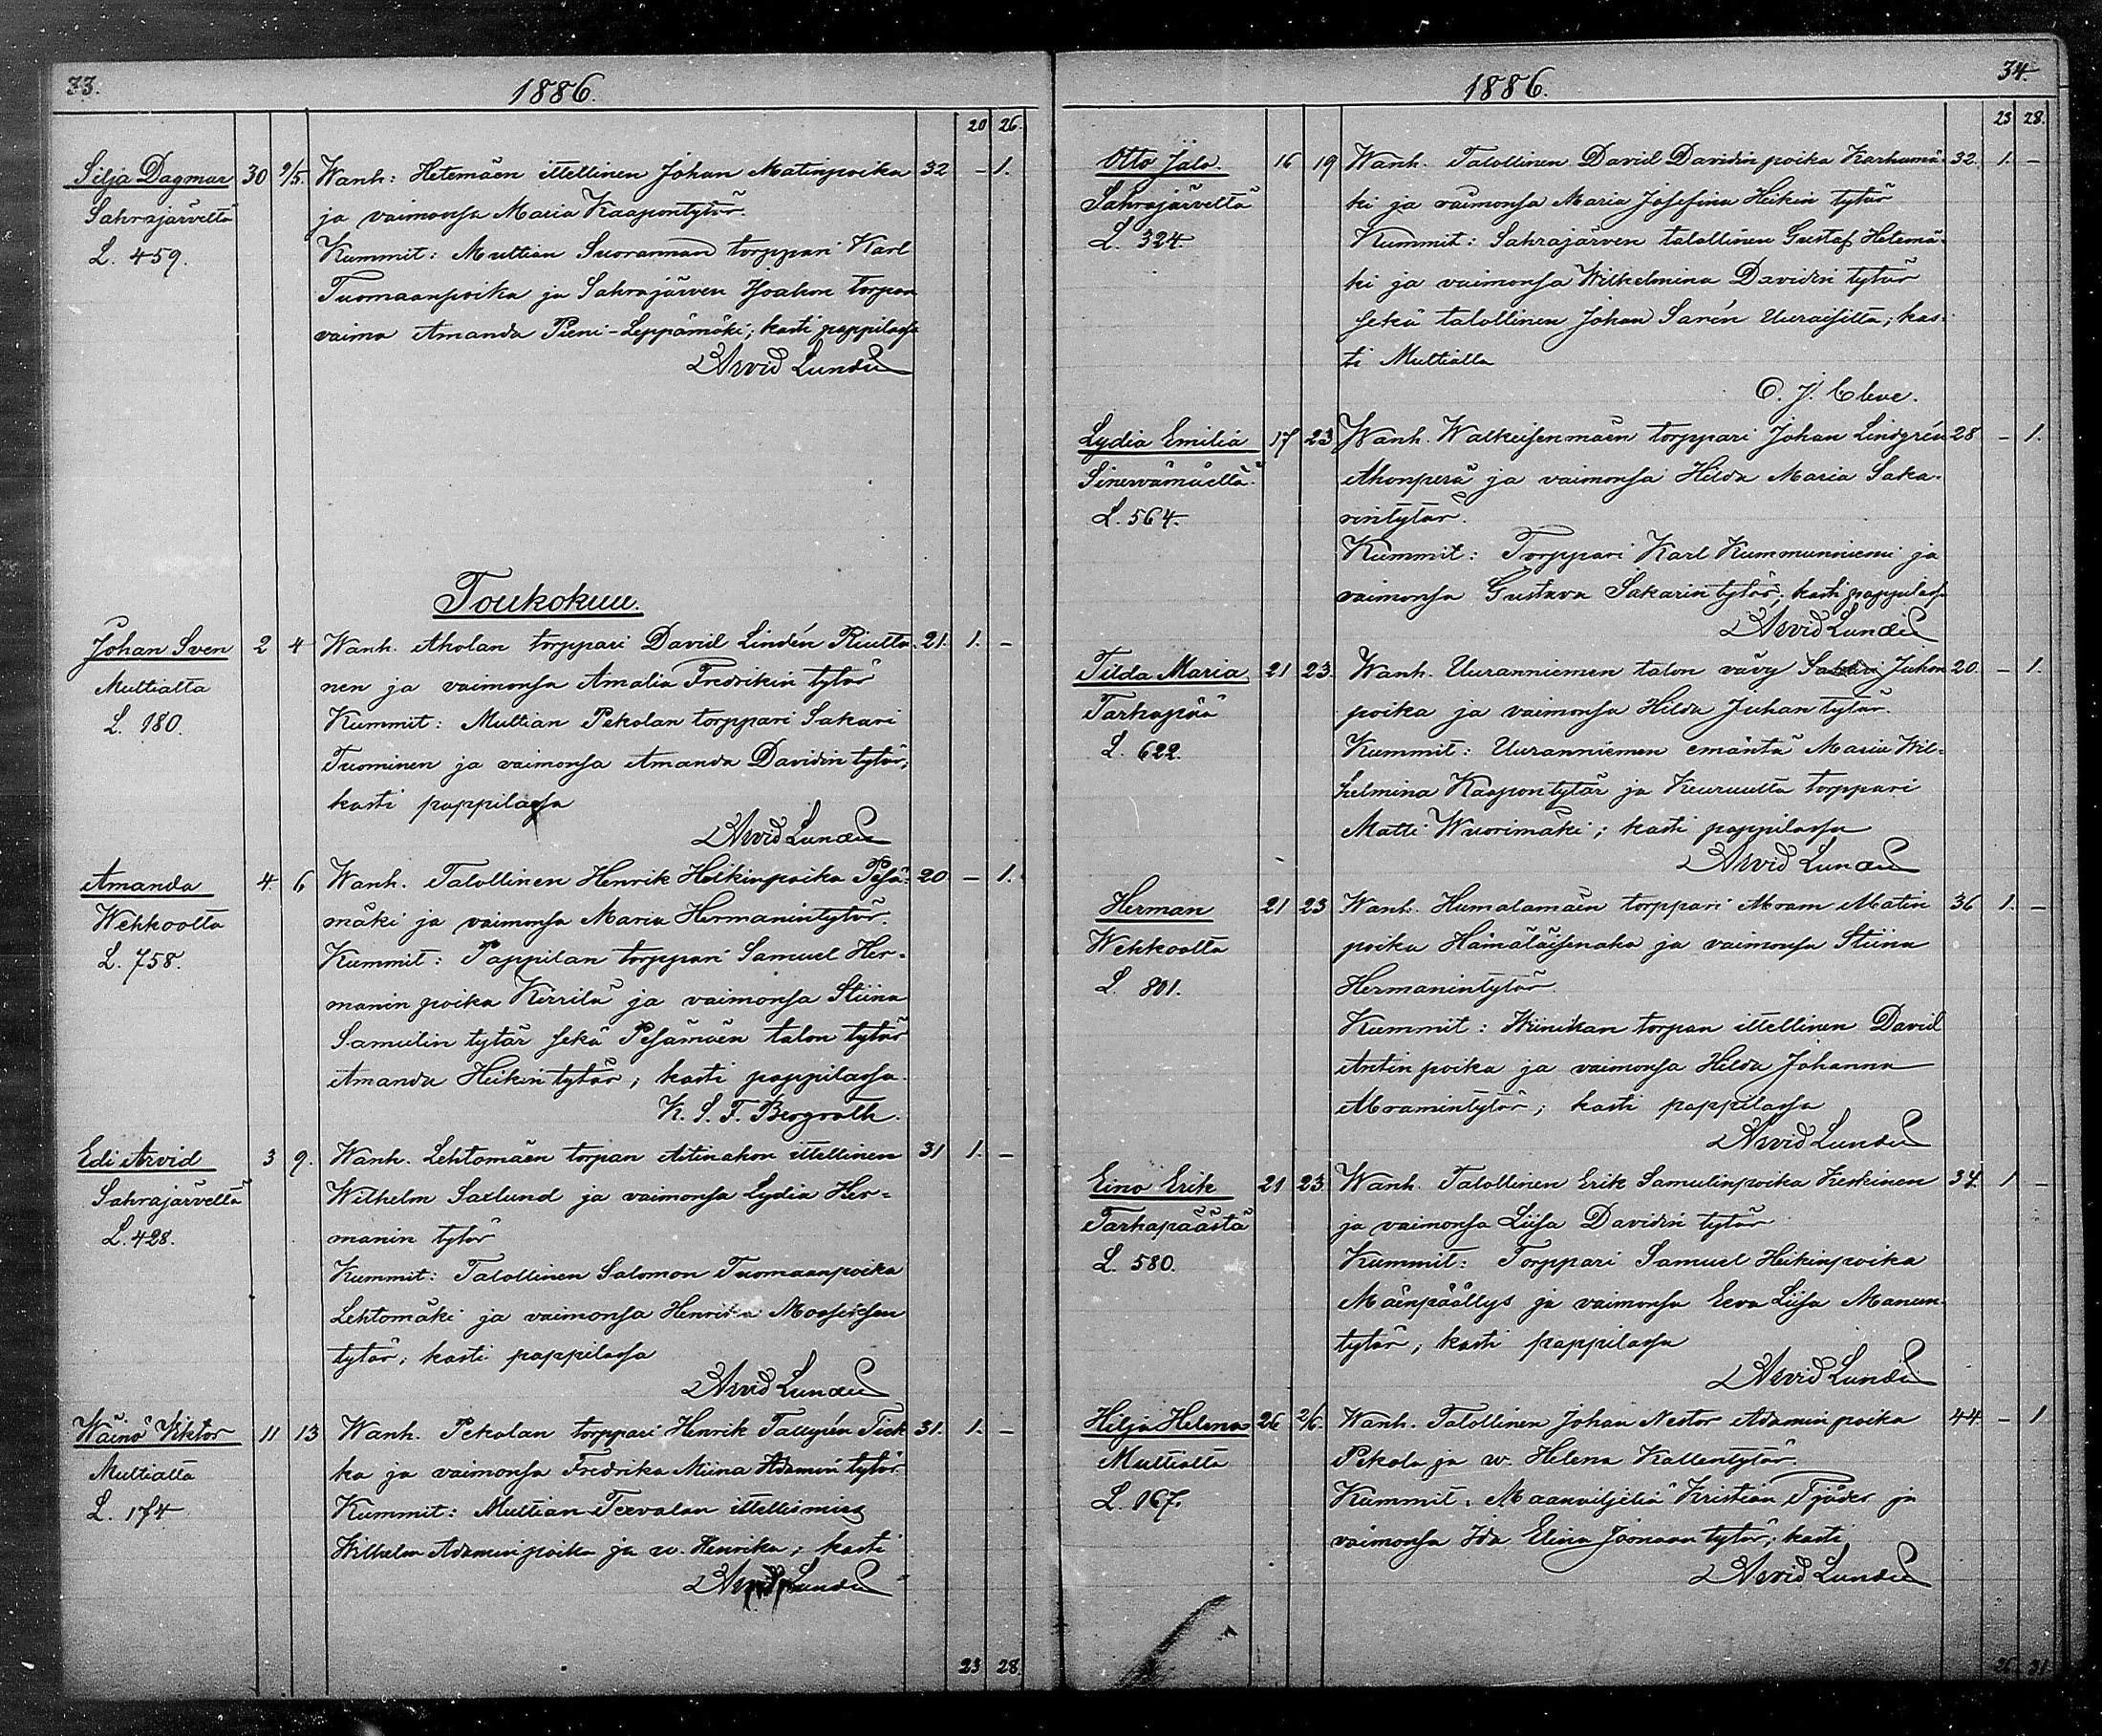 33.
1886.
20 26.
Silja Dagmar 30 9/5. Wanh: Hetemäen ittellinen Johan Matinpoika 32 - 1.
Sahrajärveltä ja vaimonsa Maria Kaapontytär.
L. 459. Kummit: Multian Suorannan torppari Karl
Tuomaanpoika ja Sahrajärven Isoahon torpan
vaimo Amanda Pieni-Leppämäki; kasti pappilassa
Arvid Lundén
Toukokuu.
Johan Sven 2 4 Wanh. Aholan torppari David Lindén Riutta- 21. 1. -
Multialta nen ja vaimonsa Amalia Fredrikin tytär
L. 180. Kummit: Multian Pekolan torppari Sakari
Tuominen ja vaimonsa Amanda Davidin tytär;
kasti pappilassa
Arvid Lundén
Amanda 4. 6 Wanh. Talollinen Henrik Heikinpoika Pesä- 20 - 1.
Wehkoolta mäki ja vaimonsa Maria Hermanintytär.
L. 758. Kummit: Pappilan torppari Samuel Her-
manin poika Kerrilä ja vaimonsa Stiina
Samulin tytär sekä Pesämäen talon tytär
Amanda Heikin tytär; kasti pappilassa.
K. S. F. Bergroth.
Edi Arvid 3 9. Wanh. Lehtomäen torpan Aitinahon ittellinen 31 1. -
Sahrajärveltä Wilhelm Saxlund ja vaimonsa Lydia Her-
L. 428. manin tytär
Kummit: Talollinen Salomon Tuomaanpoika
Lehtomäki ja vaimonsa Henrika Mooseksen
tytär; kasti pappilassa
Arvid Lundén
Wäinö Viktor 11 13 Wanh. Pekolan torppari Henrik Tallgrén Tiek- 31. 1. -
Multialta ka ja vaimonsa Fredrika Miina Adamin tytär.
L. 174 Kummit: Multian Tervalan ittellismies
Wilhelm Adamin poika ja w. Henrika; kasti
Arvid Lundén
23 28.
34.
1886.
23 28.
Otto Jalo 16 19 Wanh. Talollinen David Davidin poika Karhumä- 32. 1. -
Sahrajärveltä ki ja vaimonsa Maria Josefina Heikin tytär
L. 324. Kummit: Sahrajärven talollinen Gustaf Hetemä-
ki ja vaimonsa Wilhelmina Davidin tytär
sekä talollinen Johan Sarén Uuraisilta; kas-
ti Multialla
O. J. Cleve.
Lydia Emilia 17 23 Wanh. Walkeisenmäen torppari Johan Lindgrén 28 - 1.
Sinervämäeltä Ahonperä ja vaimonsa Hilda Maria Saka-
L. 564. rintytär.
Kummit: Torppari Karl Kummunniemi ja
vaimonsa Gustava Sakarintytär; kasti pappilassa
Arvid Lundén
Tilda Maria 21 23. Wanh. Uuranniemen talon vävy Sakari Juhon 20. - 1.
Tarhapää poika ja vaimonsa Hilda Juhan tytär.
L. 622. Kummit: Uuranniemen emäntä Maria Wil-
helmina Kaapontytär ja Keuruulta torppari
Matti Wuorimäki; kasti pappilassa
Arvid Lundén
Herman 21 23 Wanh. Humalamäen torppari Abram Matin 36 1. -
Wehkoolta poika Hämäläisenaho ja vaimonsa Stiina
L. 801. Hermanintytär.
Kummit: Wiinikan torpan ittellinen David
Antin poika ja vaimonsa Hilda Johanna
Abramintytär; kasti pappilassa
Arvid Lundén
Eino Erik 21 23 Wanh. Talollinen Erik Samulinpoika Keskinen 34. 1 -
Tarhapäästä ja vaimonsa Liisa Davidin tytär
L. 580. Kummit: Torppari Samuel Heikinpoika
Mäenpäällys ja vaimonsa Eeva Liisa Manun-
tytär; kasti pappilassa
Arvid Lundén
Hilja Helena 26 2/6. Wanh. Talollinen Johan Nestor Adamin poika 44. - 1
Multialta Pekola ja w. Helena Kallentytär.
L. 167. Kummit: Maanviljeliä Kristian Tjäder ja
vaimonsa Ida Elina Joonaan tytär; kasti
Arvid Lundén
26 31